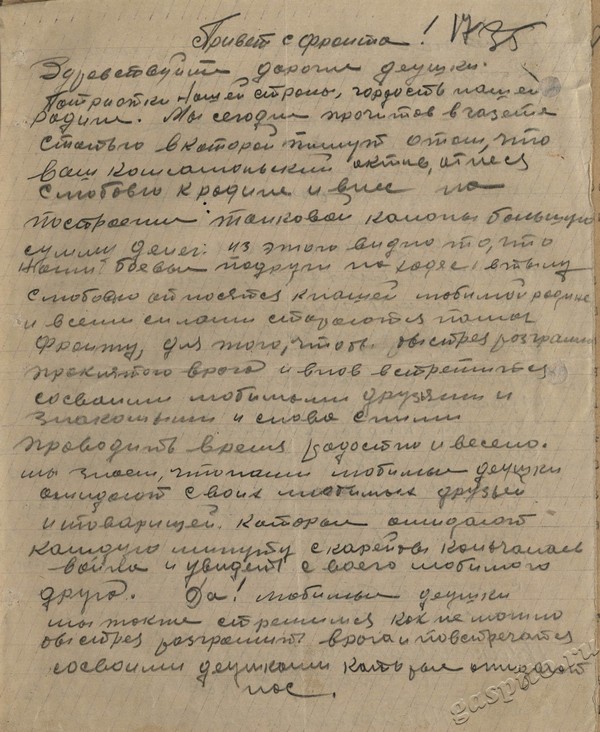 Привет с фронта! 1735
Здравствуйте дорогие деушки.
Патриотки нашей страны, гордость нашей
родины. Мы сегодня прочитов в газете
статью в которой пишут о том, что
ваш комсамольский актив, отнеся
с любовю к родине и внес на
построение танковой калоны большую
сумму денег. из этого видно то, что
наши боевые подруги находяс в тылу
с любовю относятся к нашей любимой родине
и всеми силами стараются помоч
фронту, для того, чтобы быстрея разгромит
проклятого врага и внов встретится
со своими любимыми друзями и
знакомыми и снова с ними
проводить время радостно и весело.
мы знаем, что наши любимые деушки
ожидают своих любимых друзей
и товарищей. которые ожидают
каждую минуту скарейбы кончалась
война и увидет своего любимого
друга. Да! любимые деушки
мы также стремимся как не можно
быстрея разгромит врага и повстречатся
со своими деушками которые ожидают
нас.
gaspiko.ru